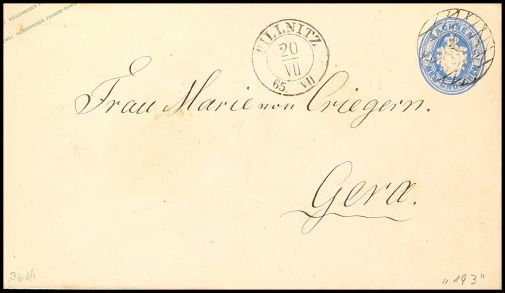 PILLNITZ
20
VII
65. VII
SACHSEN
Frau Marie von Criegern.
Gera.
"193"